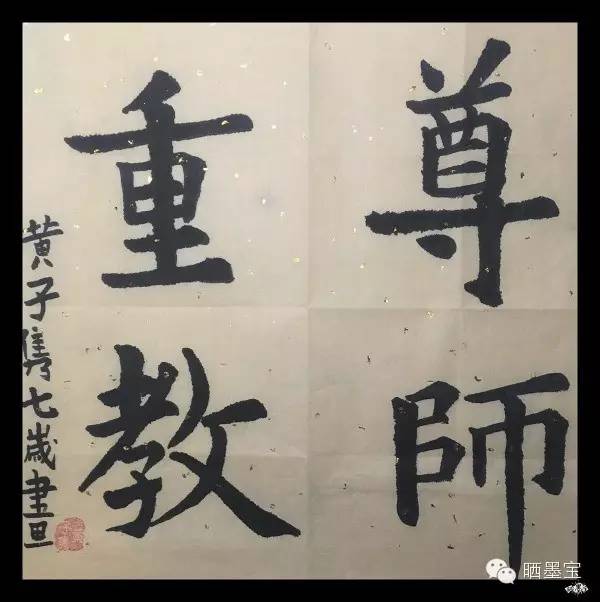 尊師
重教
黄子隽七歲書
晒墨宝